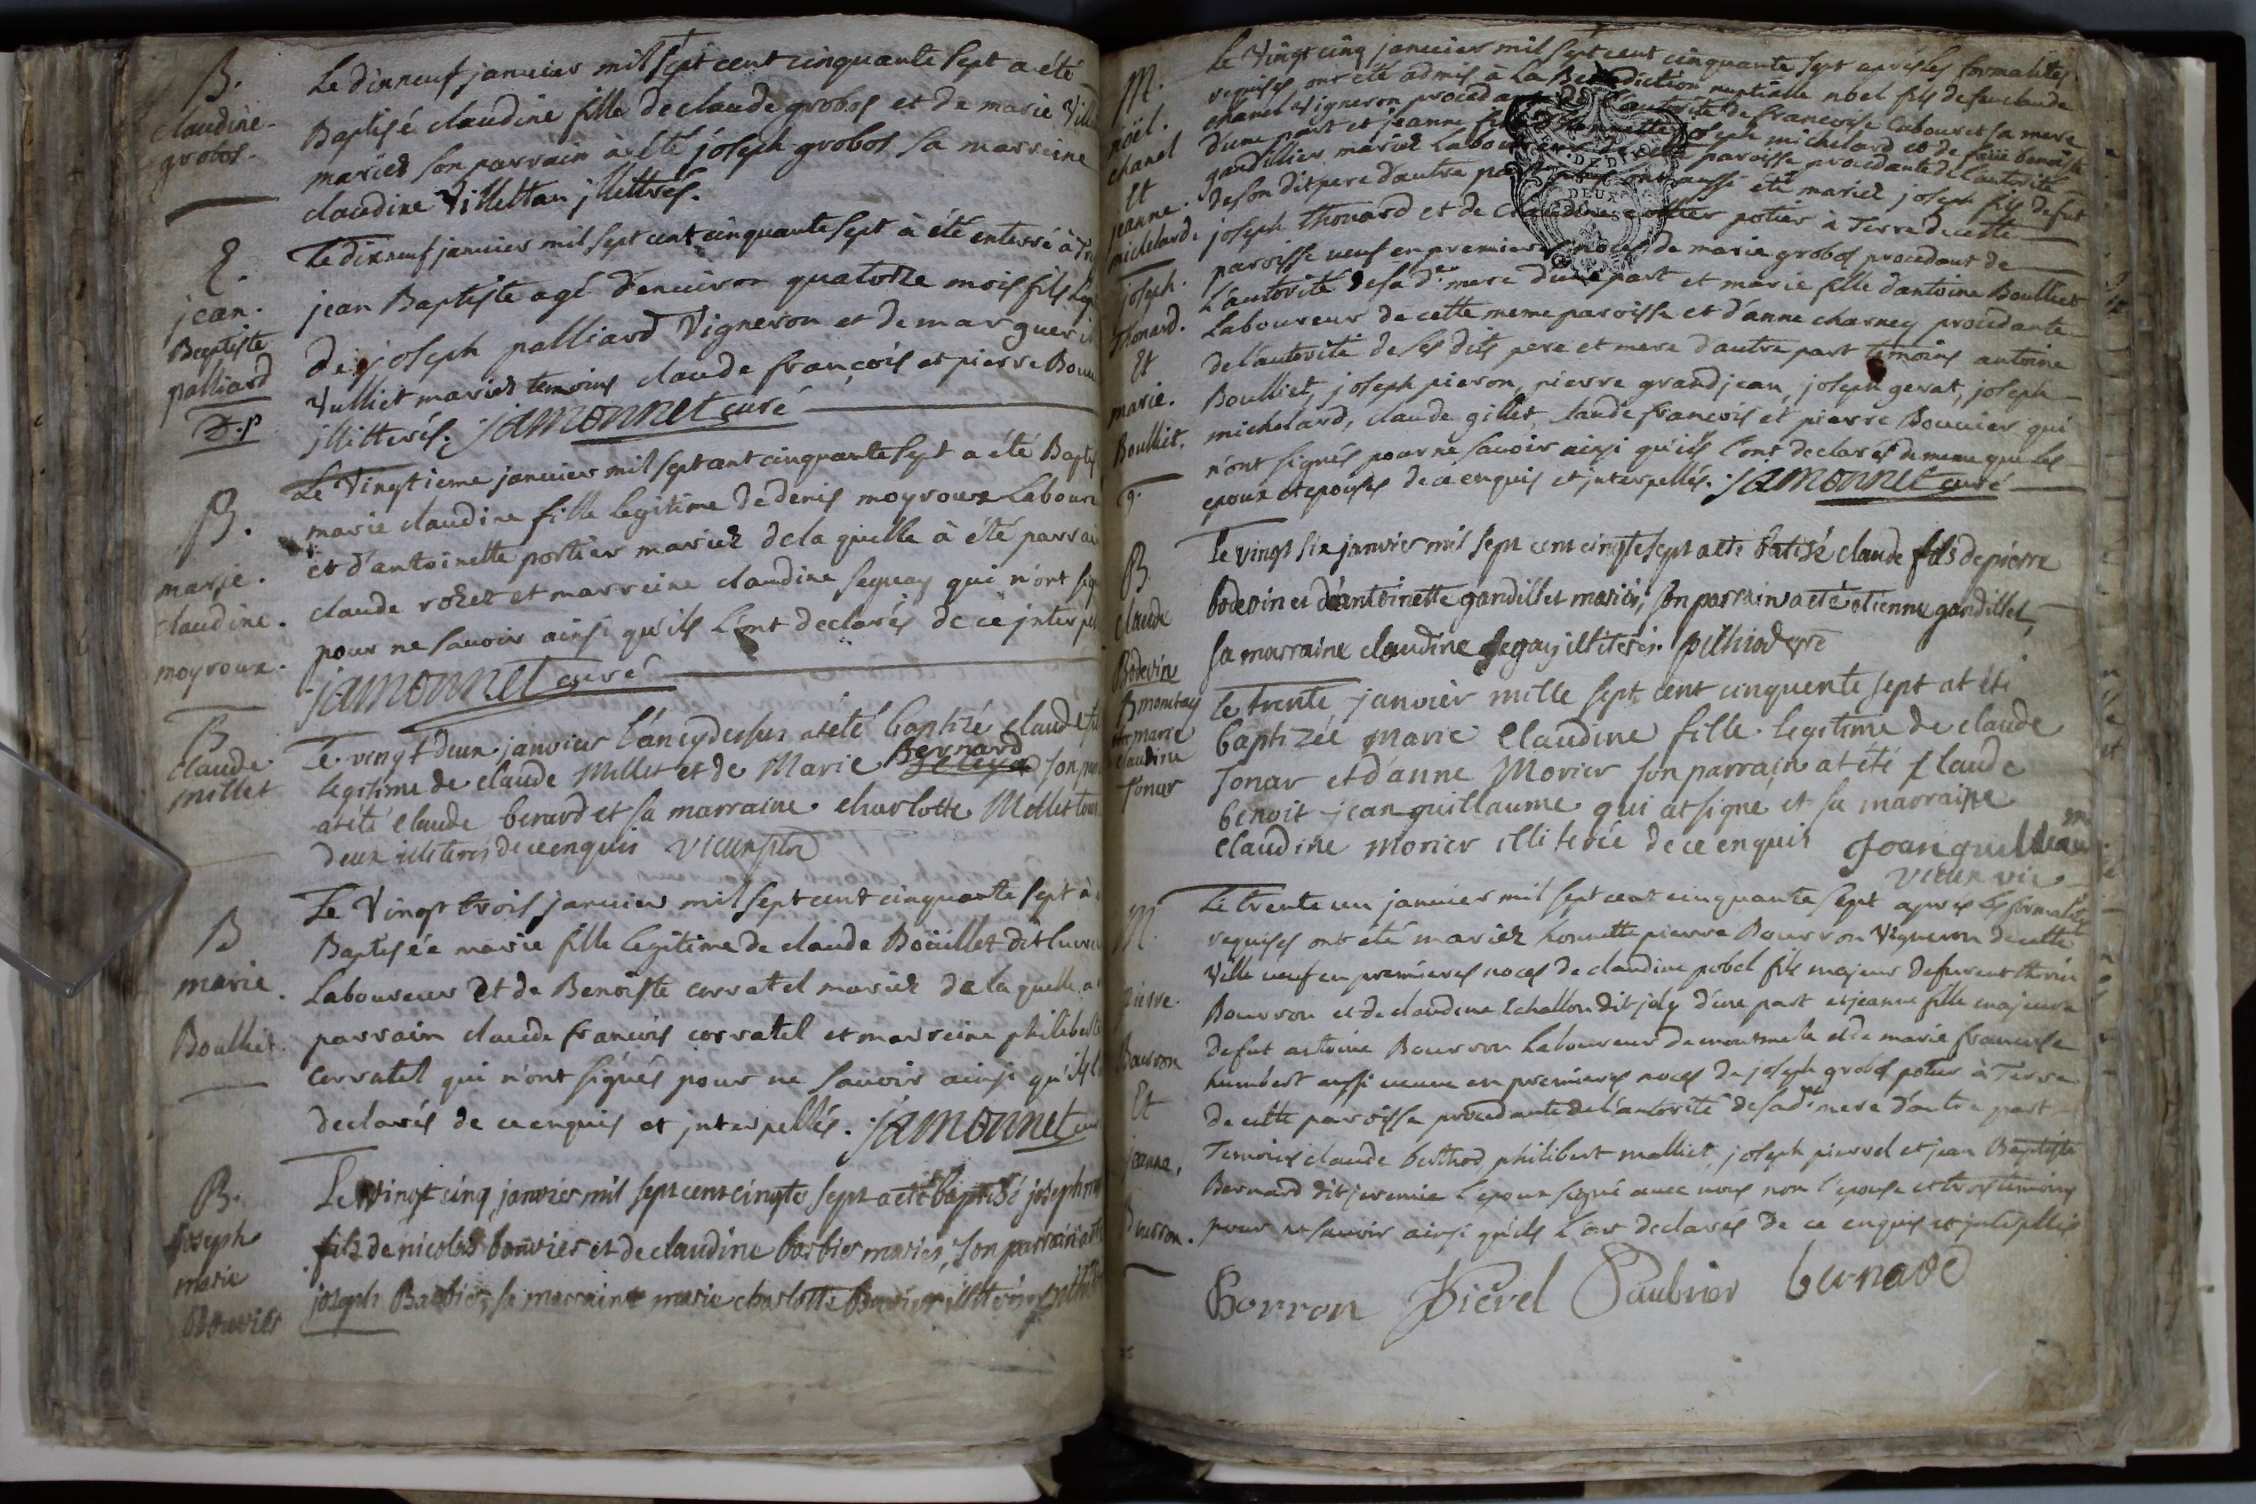 B.
claudine
grobos.
Le dixneuf janvier mil sept cent cinquante sept a été
Baptisé claudine fille de claude grobos et de marie
mariez son parrain à été joseph grobos sa marreine
claudine Villettan jllittrés.
E.
jean.
Baptiste
palliard
D.P
Le dixneuf janvier mil sept cent cinquante sept à été enterré à
jean Baptiste agé d'environ quatorze mois fils
de joseph palliard Vigneron et de marguerit
Vulliet mariez temoins claude françois et pierre
jllitterés. jamonnet curé
B.
marie.
claudine.
moyroux.
Le Vingtieme janvier mil sept cent cinquante sept a été
marie claudine fille legitime de denis moyroux Laboure
et d'antoinette portier mariez de la quelle à été parrai
claude rozet et marreine claudine seguay qui n'ont
pour ne savoir ainsi qu'ils l'ont declarés de ce
jamonnet curé
B
claude
millet
Le vingt deux janvier l'an cy dessus at été baptizé claude
legitime de claude Millet et de Marie Bernard son
at été claude berard et sa marraine charlotte Millet tous
deux illiterés de ce enquis
B
marie.
Boulliet.
Le Vingt trois janvier mil sept cent cinquante sept à
Baptisée marie fille legitime de claude Boüillet dit
Laboureur Et de Benoiste corratel mariez de la quelle a
parrain claude francois corratel et marreine philiberte
corratel qui n'ont signés pour ne savoir ainsi qu'ils
declarés de ce enquis et jnterpellés. jamonnet
B.
joseph
marie
Bouvier
Le vingt cinq janvier mil sept cent cinqte sept a été baptisé joseph
fils de nicolas bouvier et de claudine barbier mariés, son parrain
joseph Barbier, sa marraine marie charlotte
M.
noël.
chanel
Et
jeanne.
michelard.
joseph.
Thonard.
Et
marie.
Boulliet.
Le Vingt cinq janvier mil sept cent cinquante sept aprés les formalités
requises ont été admis à La Benediction nuptialle noel fils de feu claude
chanel vigneron procedant de l'autorité de francoise Labouret sa mere
d'une part et jeanne joseph michelard et de feüe benoiste
gandillier mariez Laboureur paroisse procedante de l'autorité
de son dit pere d'autre part aussi été mariez joseph fils de fut
joseph Thonard et de claudine potier à Terre de cette
paroisse veuf en premieres noces de marie grobos procedant de
L'autorité de sa de. mere d'une part et marie fille d'antoine Boulliet
Laboureur de cette meme paroisse et d'anne charney procedante
de l'autorité de ses dits pere et mere d'autre part temoins antoine
Boulliet, joseph pieron, pierre grandjean, joseph gerat, joseph
michelard, claude gillet, claude francois et pierre Bouvier qui
n'ont signés pour ne savoir ainsi qu'ils l'ont declarés de meme que les
epoux et epouses de ce enquis et jnterpellés. jamonnet curé
B.
claude
Bodevin
Le vingt six janvier mil sept cent cinqte sept a été batisé claude fils de pierre
bodevin et d'antoinette gandillet mariés, son parrain a été etienne gandillet,
sa marraine claudine segay illiterés.
B
marie
claudine
Tonar
Le trente janvier mille sept cent cinquente sept at été
baptizée marie Claudine fille legitime de claude
Tonar et d'anne Morier son parrain at été claude
benoit jean guillaume qui at signé et sa marraine
claudine morier illiterée de ce enquis Joanguilleaume
M.
pierre.
Bourron
Et
jeanne.
Bourron.
Le trente un janvier mil sept cent cinquante sept apres les formalités
requises ont été mariez honnette pierre Bourron Vigneron de cette
Ville veuf en premieres noces de claudine pobel fils majeur de
Bourron et de claudine Echallon dit joly d'une part et jeanne fille majeure
de fut antoine Bourron Laboureur de et de marie francoise
humbert aussi veuve en premieres noces de joseph grobos potier à Terre
de cette paroisse procedante de l'autorité de sa de. mere d'autre part
Temoins claude berthod, philibert malliet, joseph pierrel et jean Baptiste
Bernard dit jeremie L'epoux signé avec nous non l'epouse et trois temoins
pour ne savoir ainsi qu'ils l'ont declarés de ce enquis et jnterpellés
Borron Piérel Saubrier bernard